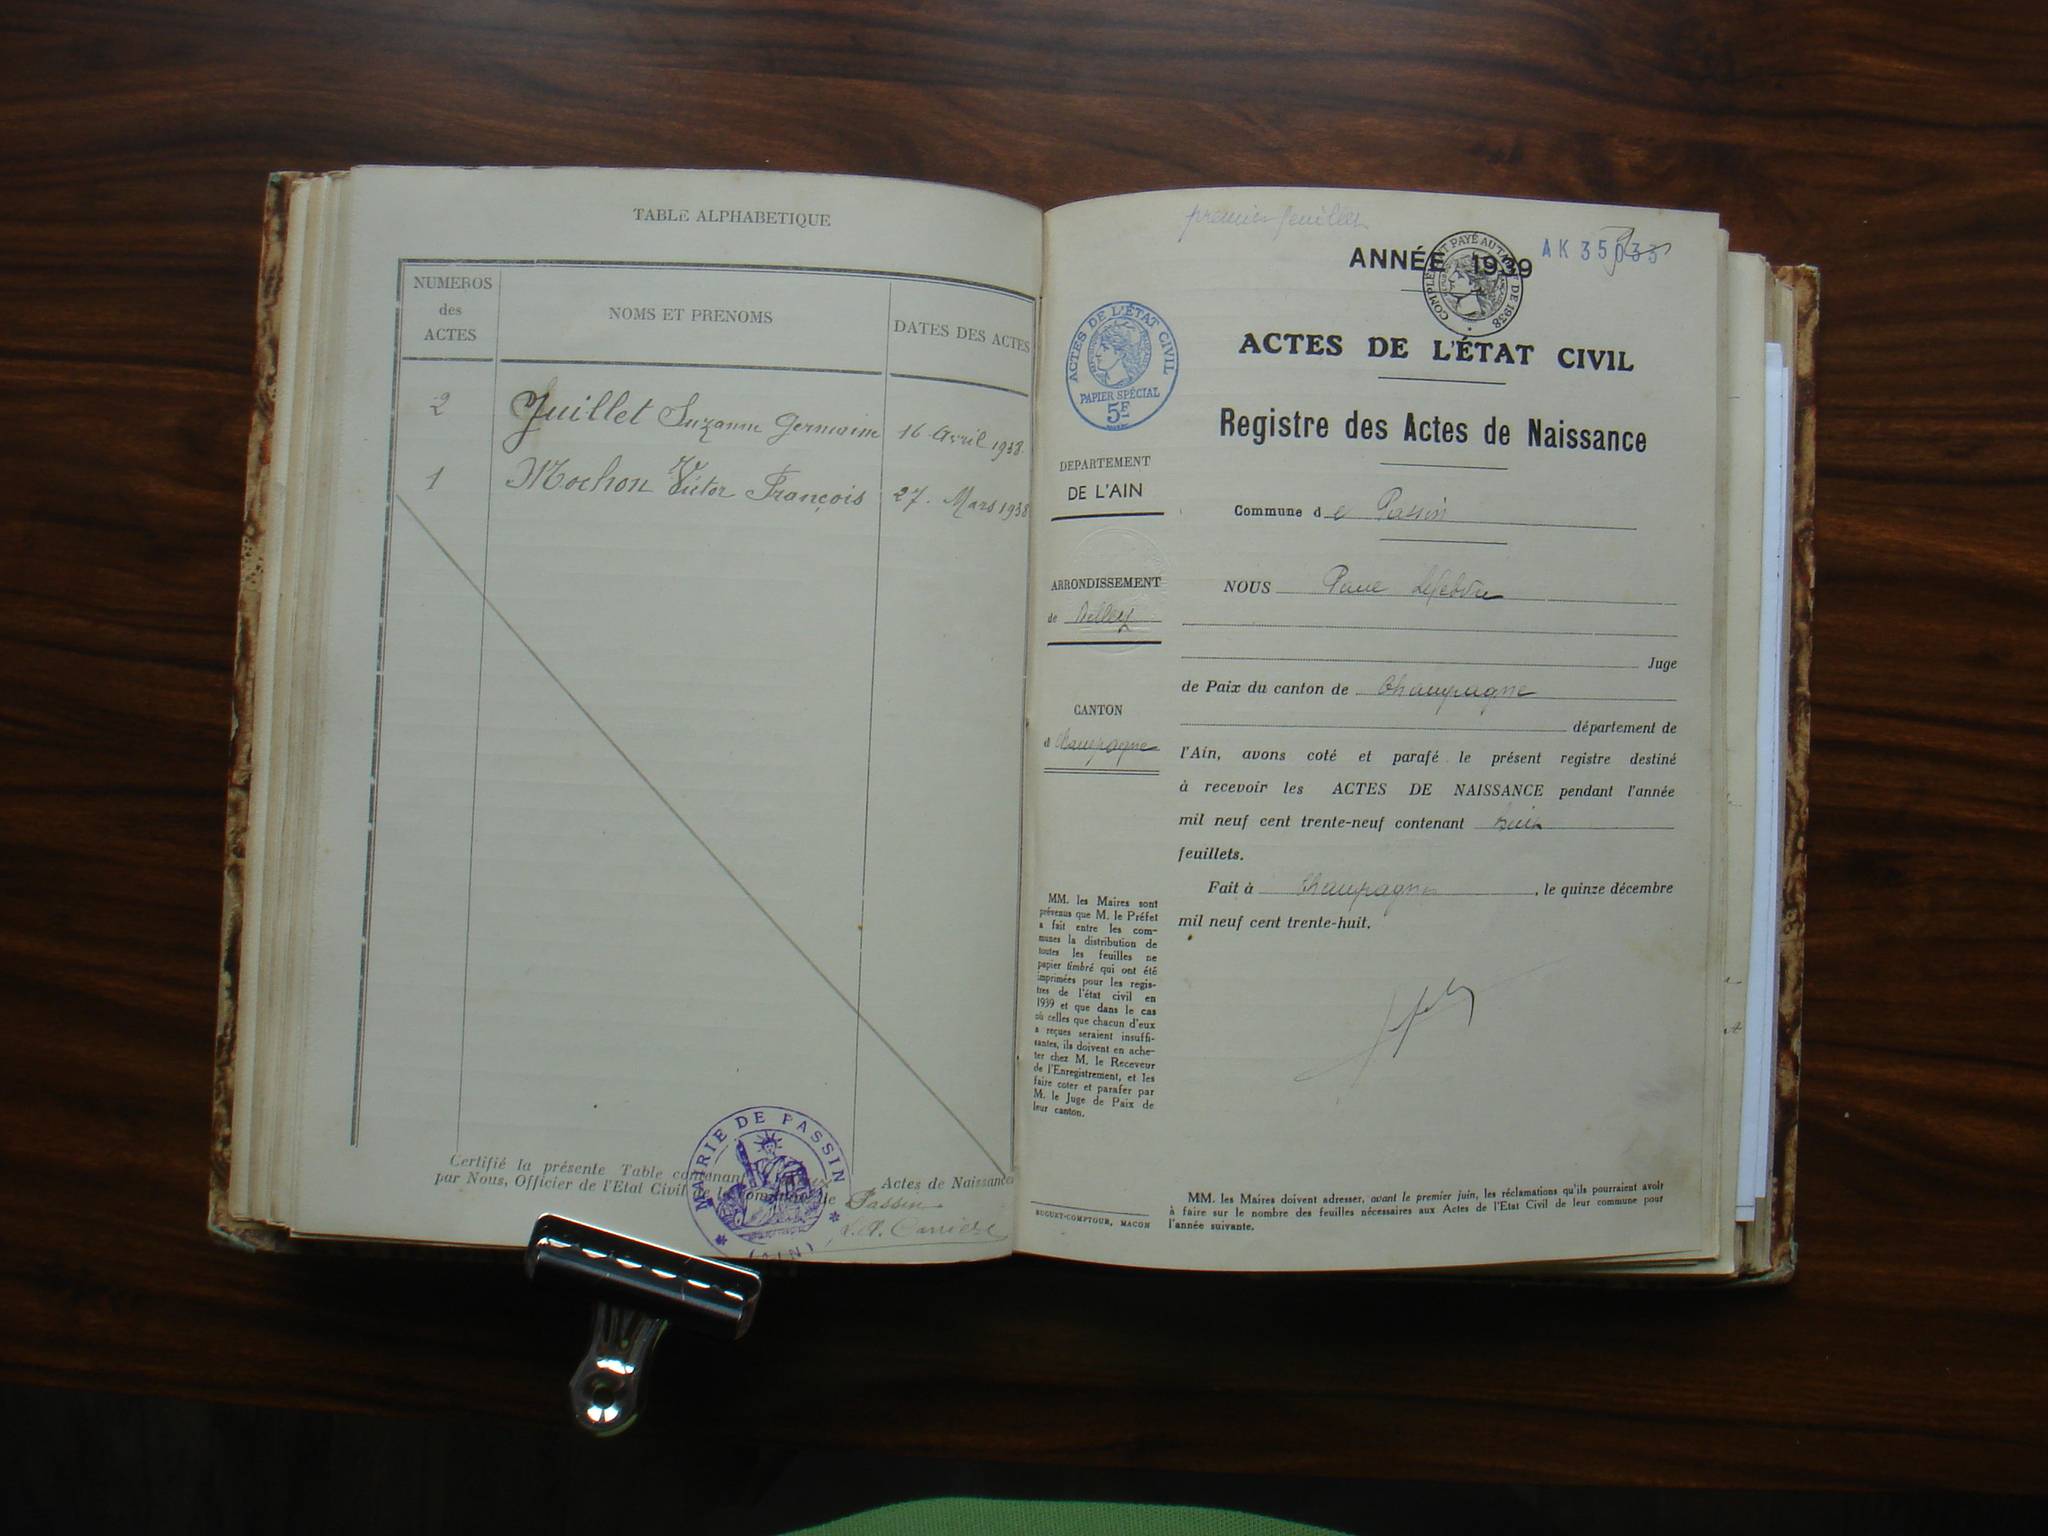 TABLE ALPHABETIQUE
NUMEROS
des
ACTES
NOMS ET PRENOMS
DATES DES ACTES
2 Juillet Suzanne Germaine 16 Avril 1938
1 Mochon Victor François 27. Mars 1938
Certifié la présente Table contenant deux Actes de Naissance
par Nous, Officier de l'Etat Civil de la Commune de Passin
MAIRIE DE PASSIN
(AIN)
premier feuillet
ANNÉE 1939
COMPLÉMENT PAYÉ AU TARIF DE 1938
AK 35033
ACTES DE L'ÉTAT CIVIL
PAPIER SPÉCIAL
5F
ACTES DE L'ÉTAT CIVIL
Registre des Actes de Naissance
DEPARTEMENT
DE L'AIN
Commune de Passin
ARRONDISSEMENT
de Belley
NOUS Paul Lefebvre
Juge
de Paix du canton de Champagne
CANTON
d Champagne
département de
l'Ain, avons coté et parafé le présent registre destiné
à recevoir les ACTES DE NAISSANCE pendant l'année
mil neuf cent trente-neuf contenant huit
feuillets.
Fait à Champagne, le quinze décembre
mil neuf cent trente-huit.
MM. les Maires sont
prévenus que M. le Préfet
a fait entre les com-
munes la distribution de
toutes les feuilles de
papier timbré qui ont été
imprimées pour les regis-
tres de l'état civil en
1939 et que dans le cas
où celles que chacun d'eux
a reçues seraient insuffi-
santes, ils doivent en ache-
ter chez M. le Receveur
de l'Enregistrement, et les
faire coter et parafer par
M. le Juge de Paix de
leur canton.
BUGUET-COMPTOUR, MACON
MM. les Maires doivent adresser, avant le premier juin, les réclamations qu'ils pourraient avoir
à faire sur le nombre des feuilles nécessaires aux Actes de l'Etat Civil de leur commune pour
l'année suivante.